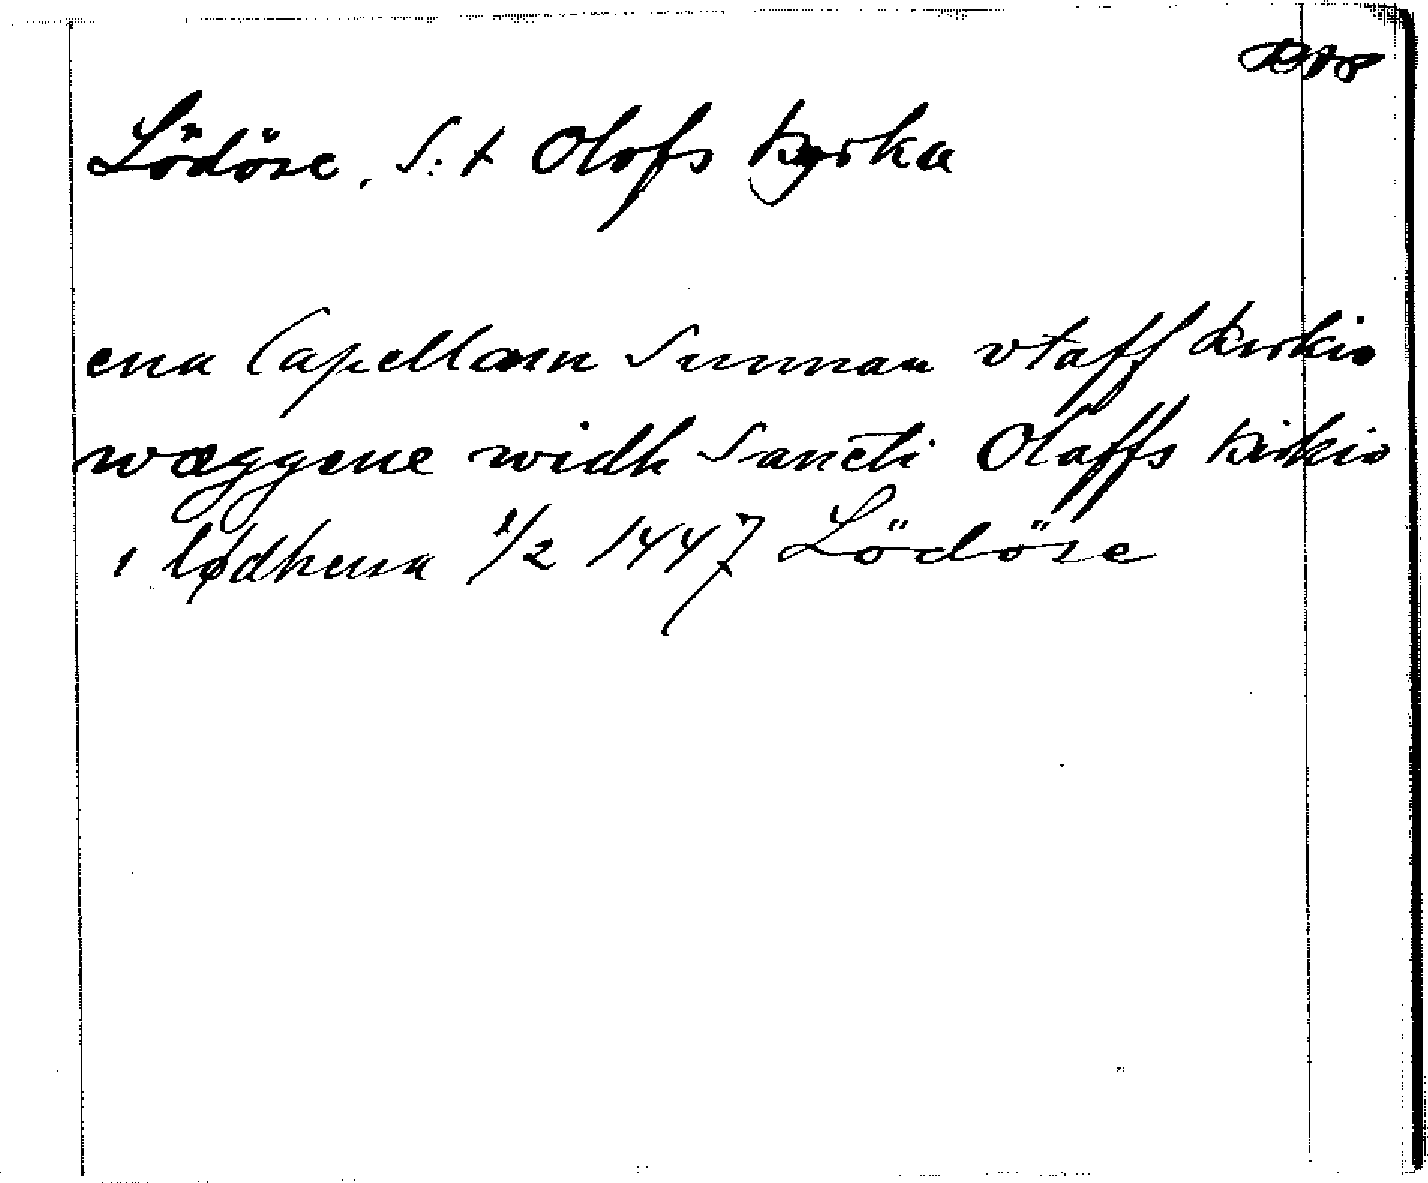 Lödöse, S:t Olofs kyrka
ena Capellam sunnan vtaff kirkio
wæggene widh Sancti Olaffs kirkio
i lødhesa 1/2 1447 Lödöse